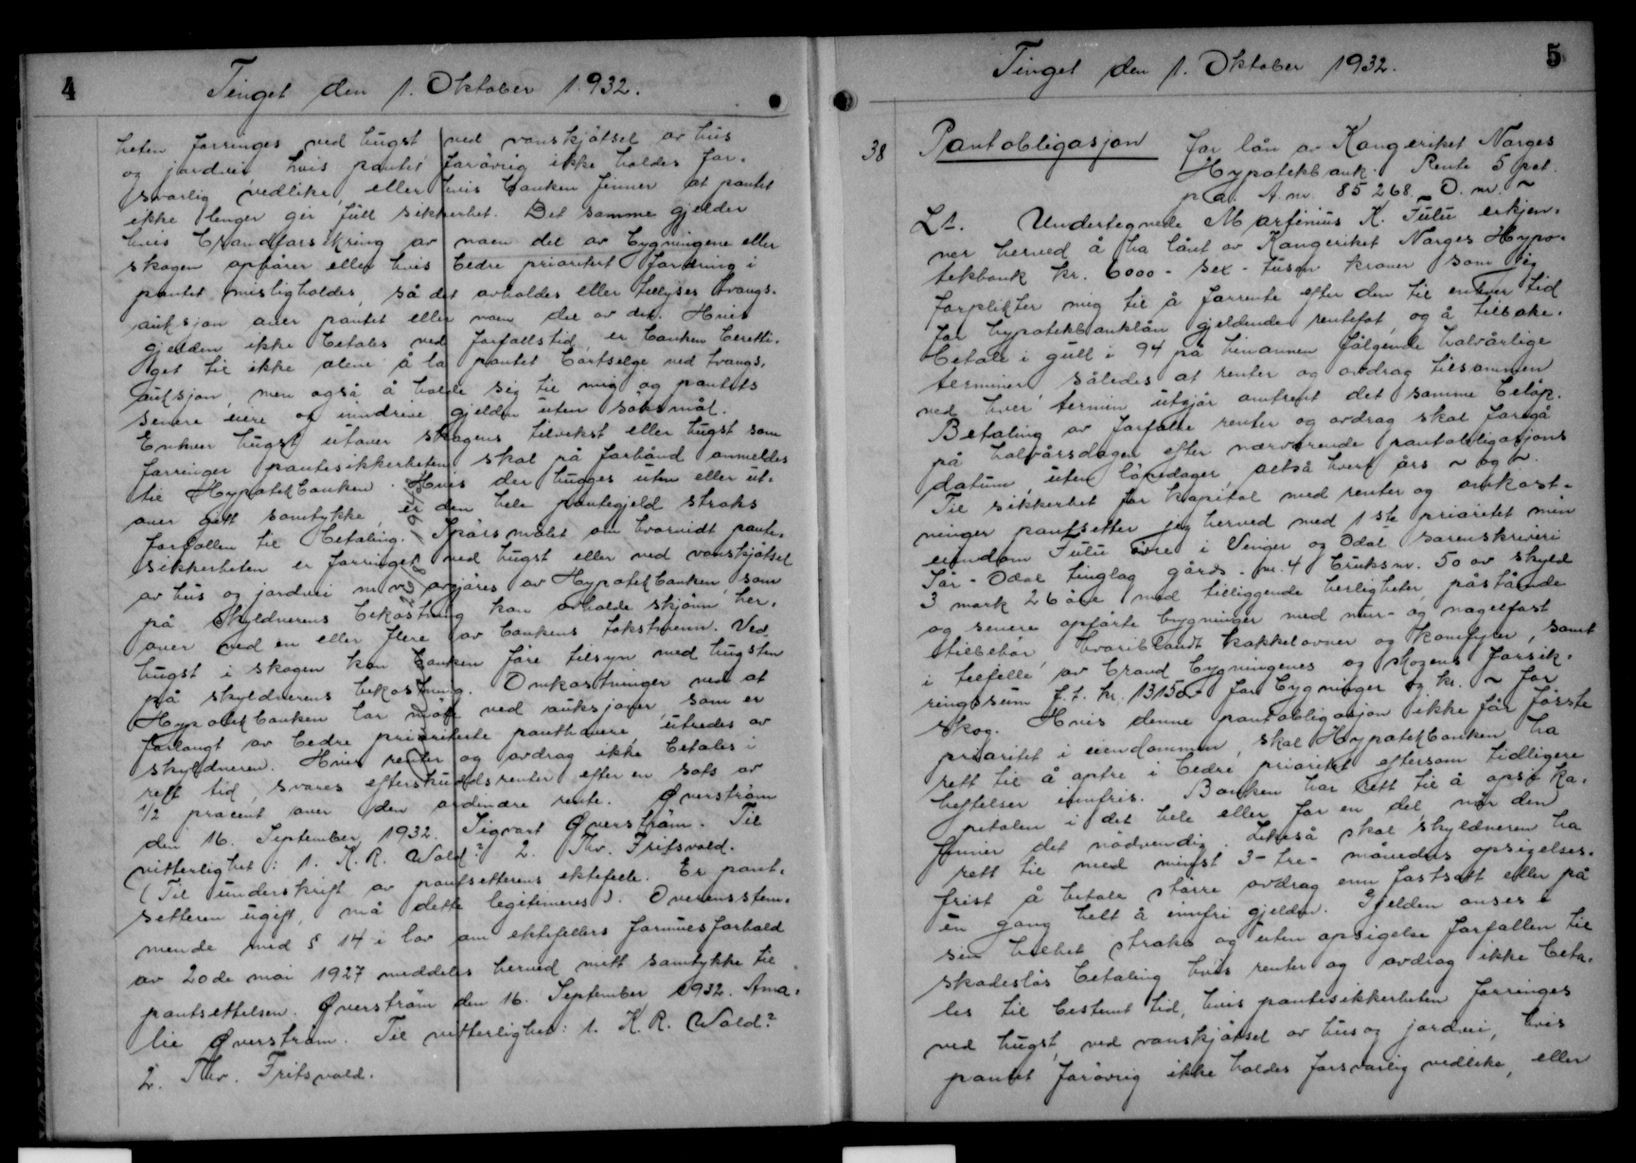 4
Tinget den 1. Oktober 1932.
heten forringes ved hugst ved vanskjøtsel av hus
og jordvei hvis pantet forøvrig ikke holdes for-
svarlig vedlike, eller hvis banken finner at pantet
ikke lenger gir full sikkerhet. Det samme gjelder
hvis brandforsikring av noen del av bygningene eller
skogen ophører eller hvis bedre prioritert fordring i
pantet misligholdes, så det avholdes eller tillyses tvangs-
auksjon over pantet eller noen del av det. Hvis
gjelden ikke betales ved forfallstid, er banken beretti-
get til ikke alene å la pantet bortselge ved tvangs-
auksjon, men også å holde sig til mig og pantets
senere eiere og inndrive gjelden uten søksmål.
Enhver hugst utover skogens tilvekst eller hugst som
forringer pantesikkerheten skal på forhånd anmeldes
til Hypotekbanken. Hvis der hugges uten eller ut-
over gitt samtykke, er den hele pantegjeld straks
forfallen til betaling. Spørsmålet om hvorvidt pante-
sikkerheten er forringet ved hugst eller ved vanskjøtsel
av hus og jordvei m.v. avgjøres av Hypotekbanken, som
på skyldnerens bekostning kan avholde skjønn her-
over ved en eller flere av bankens takstmenn. Ved
hugst i skogen kan banken føre tilsyn med hugsten
på skyldnerens bekostning. Omkostninger ved at
Hypotekbanken lar møte ved auksjoner, som er
forlangt av bedre prioriterte panthavere, utredes av
skyldneren. Hvis renter og avdrag ikke betales i
rett tid, svares efterskuddsrenter efter en sats av
1/2 procent over den ordinære rente. Øverstrøm
den 16. September 1932. Sigvart Øverstrøm. Til
vitterlighet: 1. K. R. Wold? 2. Thv. Fritsvold.
(Til underskrift av pantsetterens ektefelle. Er pant-
setteren ugift, må dette legitimeres). Overensstem-
mende med § 14 i lov om ektefellers formuesforhold
av 20de mai 1927 meddeles herved mitt samtykke til
pantsettelsen. Øverstrøm den 16. September 1932. Ama-
lie Øverstrøm. Til vitterlighet: 1. K. R. Wold?
2. Thv. Fritsvold.
5
Tinget den 1. Oktober 1932.
38 Pantobligasjon for lån av Kongeriket Norges
Hypotekbank. Rente 5 pct.
p.a. A. nr. 85268 O. nr. ~
Lt. Undertegnede Marfinius K. Fulu erkjen-
ner herved å ha lånt av Kongeriket Norges Hypo-
tekbank kr. 6000 - sex - tusen kroner som jeg
forplikter mig til å forrente efter den til enhver tid
for hypotekbanklån gjeldende rentefot, og å tilbake-
betale i gull i 94 på hinannen følgende halvårlige
terminer således at renter og avdrag tilsammen
ved hver termin utgjør omtrent det samme beløp.
Betaling av forfalne renter og avdrag skal foregå
på halvårsdagen efter nærværende pantobligasjons
datum uten løpedager, altså hvert års ~ og ~.
Til sikkerhet for kapital med renter og omkost-
ninger pantsetter jeg herved med 1ste prioritet min
eiendom Fulu øvre i Vinger og Odal sorenskriveri
Sør-Odal tinglag gårds-nr. 4 bruksnr. 50 av skyld
3 mark 26 øre med tilliggende herligheter, påstående
og senere opførte bygninger med mur- og nagelfast
tilbehør, hvoriblandt kakkelovner og komfyrer, samt
i tilfelle av brand bygningenes og skogens forsik-
ringssum f.t. kr. 13150 for bygninger og kr. ~ for
skog. Hvis denne pantobligasjon ikke får første
prioritet i eiendommen, skal Hypotekbanken ha
rett til å optre i bedre prioritet eftersom tidligere
heftelser innfris. Banken har rett til å opsi ka-
pitalen i det hele eller for en del, når den
finner det nødvendig. Likeså skal skyldneren ha
rett til med minst 3-tre- måneders opsigelses-
frist å betale større avdrag enn fastsatt eller på
en gang helt å innfri gjelden. Gjelden anses i
sin helhet straks og uten opsigelse forfallen til
skadesløs betaling hvis renter og avdrag ikke beta-
les til bestemt tid, hvis pantesikkerheten forringes
ved hugst, ved vanskjøtsel av hus og jordvei, hvis
pantet forøvrig ikke holdes forsvarlig vedlike, eller